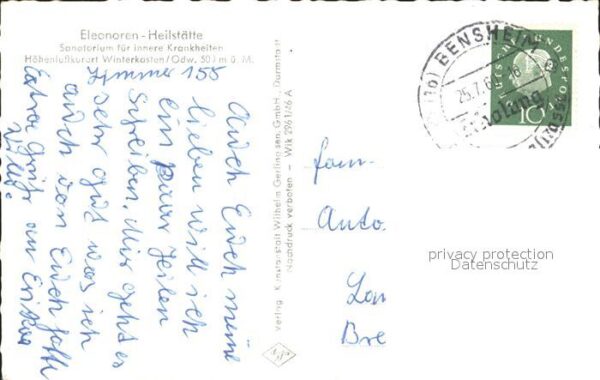 Eleonoren-Heilstätte
Sanatorium für innere Krankheiten
Höhenluftkurort Winterkasten/Odw. 501 m ü. M.
Zimmer 155
Auch Euch meine
lieben will ich
ein paar Zeilen
Schreiben. Mir geht es
sehr gut was ich
auch von Euch hoffe
Extra Grüße an
Verlag: Kunstanstalt Wilhelm Gerlingsen GmbH., Darmstadt
Nachdruck verboten – Wik 2961/46 A
BENSHEIM
25.7.6
DEUTSCHE BUNDESPOST
10
Fam.
Anto.
Lan
Bre
privacy protection
Datenschutz